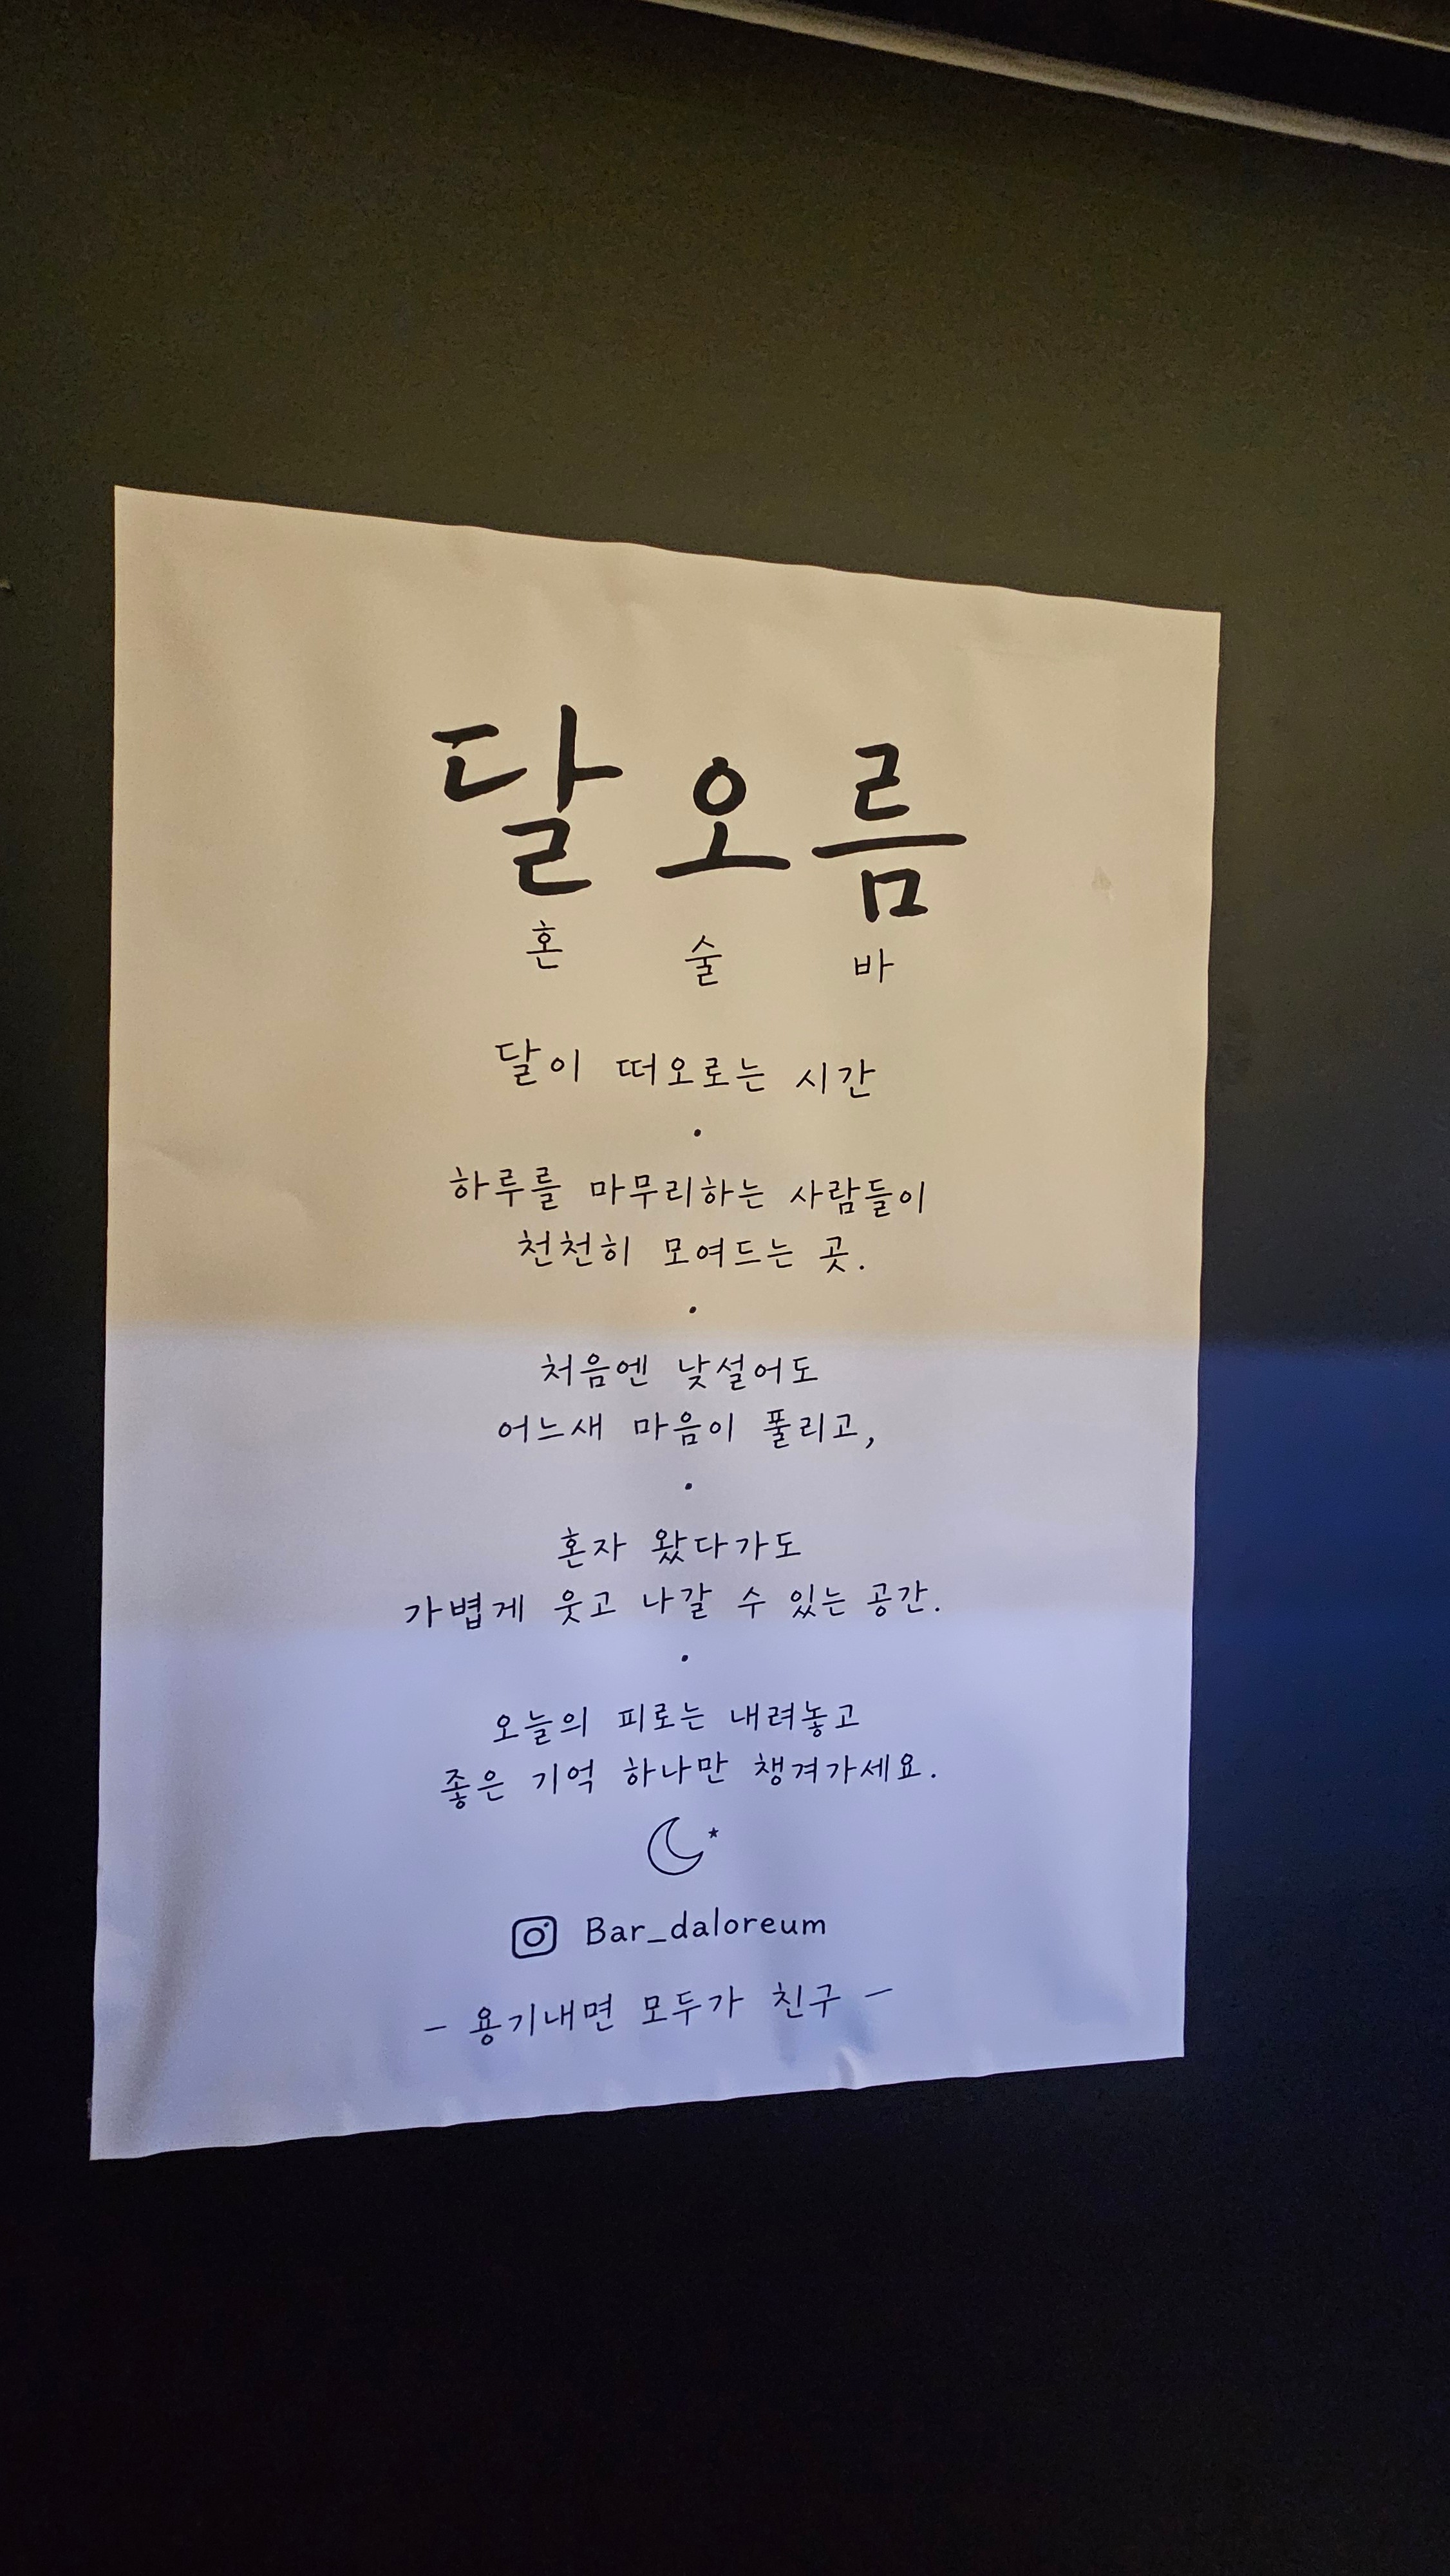 달오름
혼 술 바
달이 떠오로는 시간
하루를 마무리하는 사람들이
천천히 모여드는 곳.
처음엔 낯설어도
어느새 마음이 풀리고,
혼자 왔다가도
가볍게 웃고 나갈 수 있는 공간.
오늘의 피로는 내려놓고
좋은 기억 하나만 챙겨가세요.
Bar_daloreum
- 용기내면 모두가 친구 -